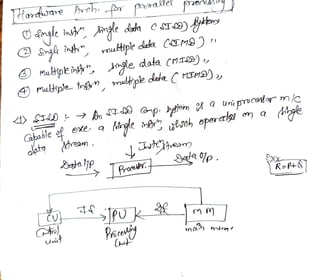 Hardware Arch. for parallel processing
① Single instrⁿ, single data (SISD) systems
② Single instrⁿ, multiple data (SIMD) "
③ Multiple instrⁿ, single data (MISD) "
④ Multiple instrⁿ, multiple data (MIMD) "
<1> SISD :- → An SISD comp. system is a uniprocessor m/c
capable of exe. a single instrⁿ, which operates on a single
data stream.
Instⁿ stream
Data I/P
Processor.
Data O/P.
Ex:-
R=P+Q
CU
IS
PU
DS
MM
Control
unit
Processing
Unit
main mem.